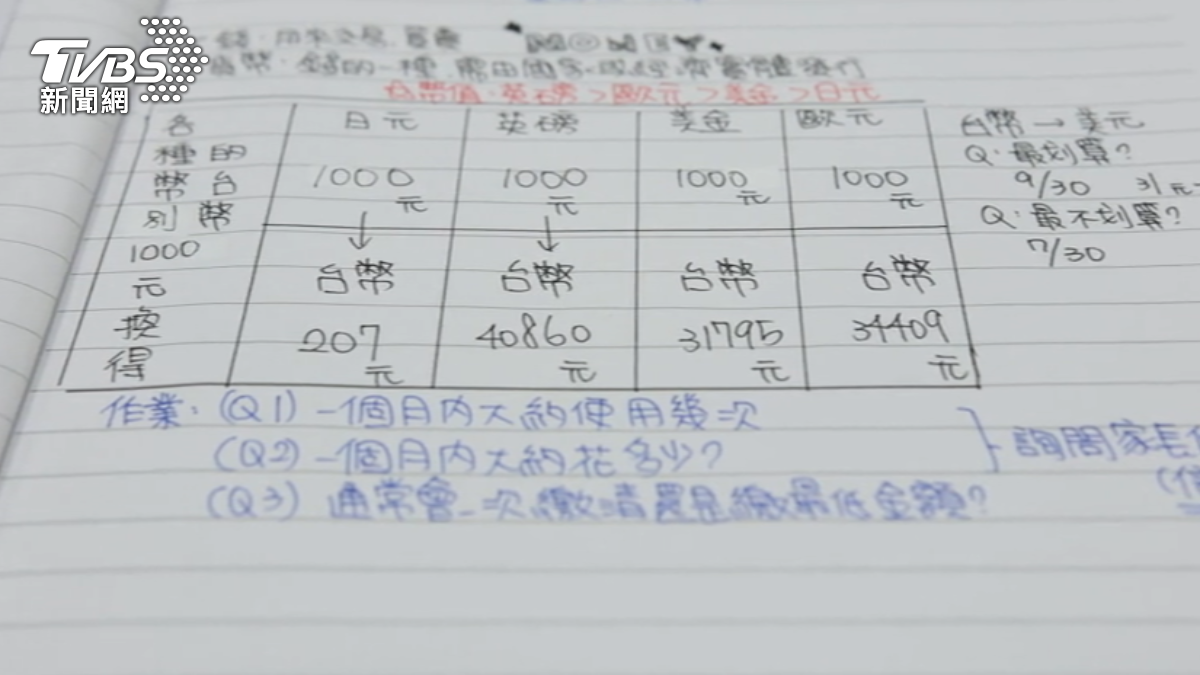 TVBS
新聞網
錢：用來交易、買賣 MONEY
貨幣：錢的一種，需由國家或經濟實體發行
幣值：英磅＞歐元＞美金＞日元
各種的幣別 台幣
日元 英磅 美金 歐元
1000元 1000元 1000元 1000元
1000元換得
台幣 台幣 台幣 台幣
207元 40860元 31795元 34409元
台幣 → 美元
Q：最划算？
9/30 31元
Q：最不划算？
7/30
作業：(Q1) 一個月內大約使用幾次
(Q2) 一個月內大約花多少？
(Q3) 通常會一次繳清還是繳最低金額？
詢問家長